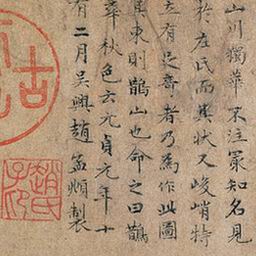 山川獨華不注冣知名見
於左氏而其狀又峻峭特
立有足奇者乃為作此圖
其東則鵲山也命之曰鵲
華秋色云元貞元年十
有二月吳興趙孟頫製
古
趙